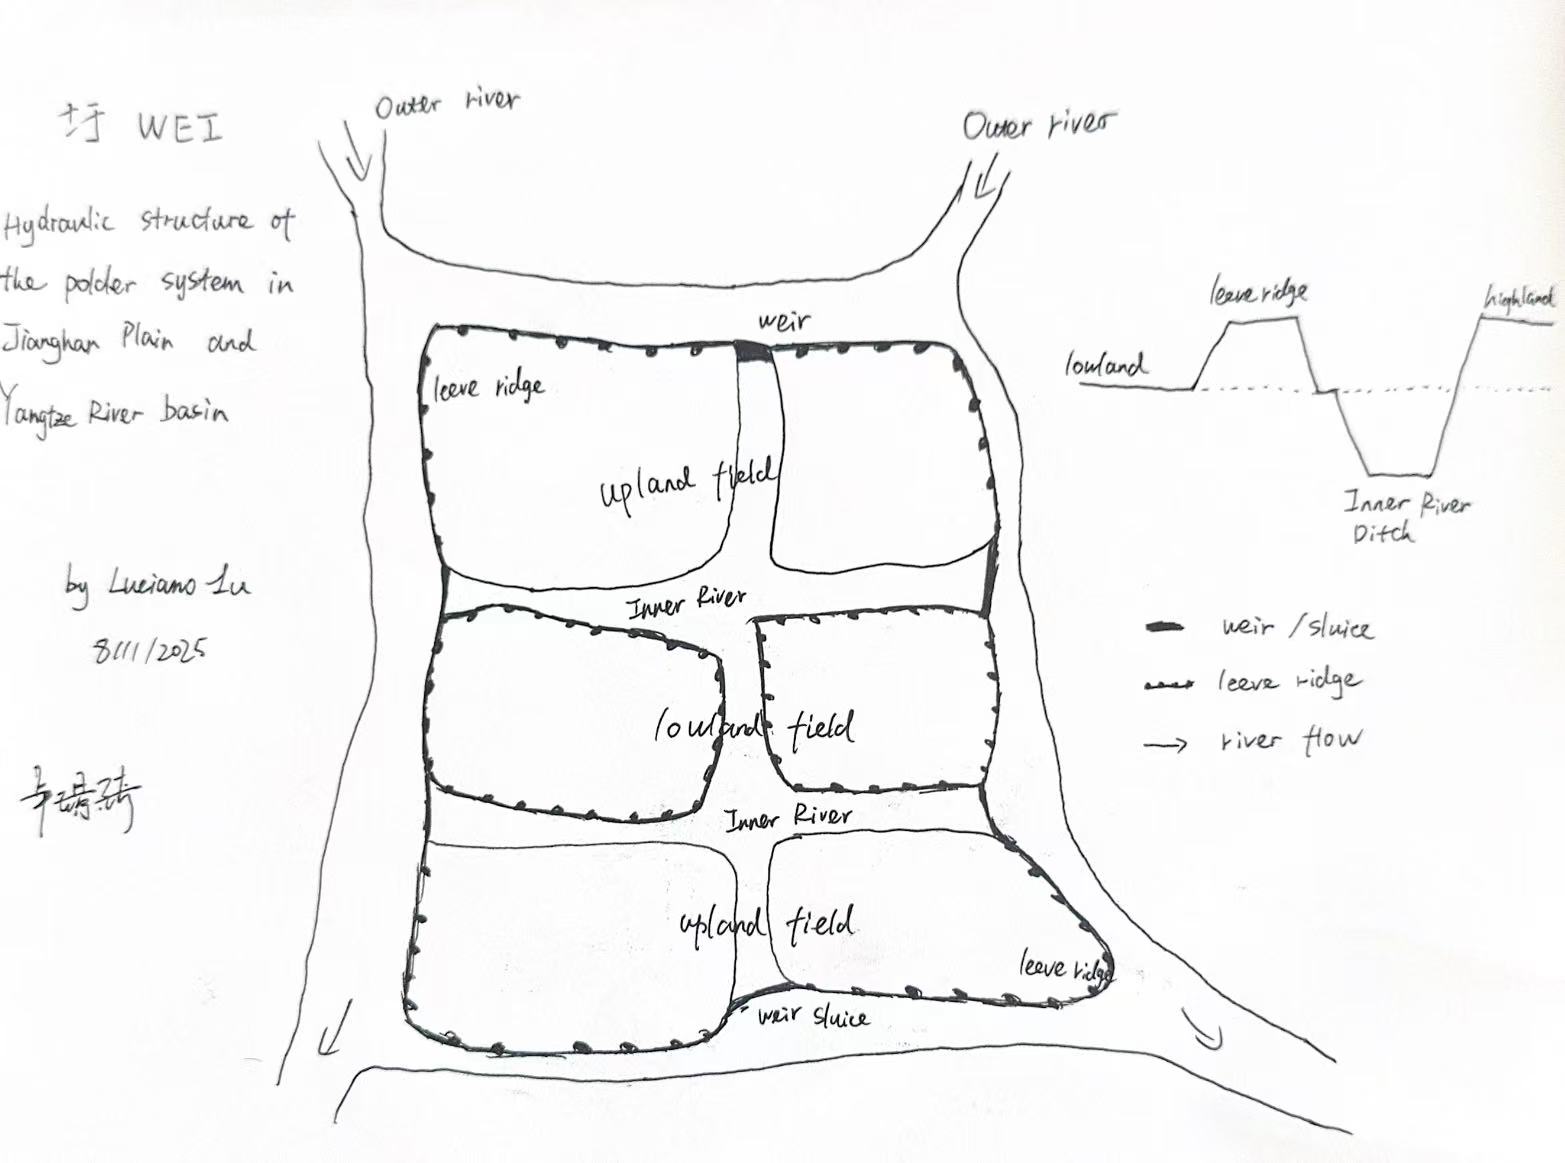 圩 WEI
Hydraulic structure of
the polder system in
Jianghan Plain and
Yangtze River basin
by Luciano Lu
8/11/2025
Outer river
Outer river
weir
leeve ridge
upland field
Inner River
lowland field
Inner River
upland field
leeve ridge
weir sluice
leeve ridge
highland
lowland
Inner River
Ditch
weir / sluice
leeve ridge
river flow